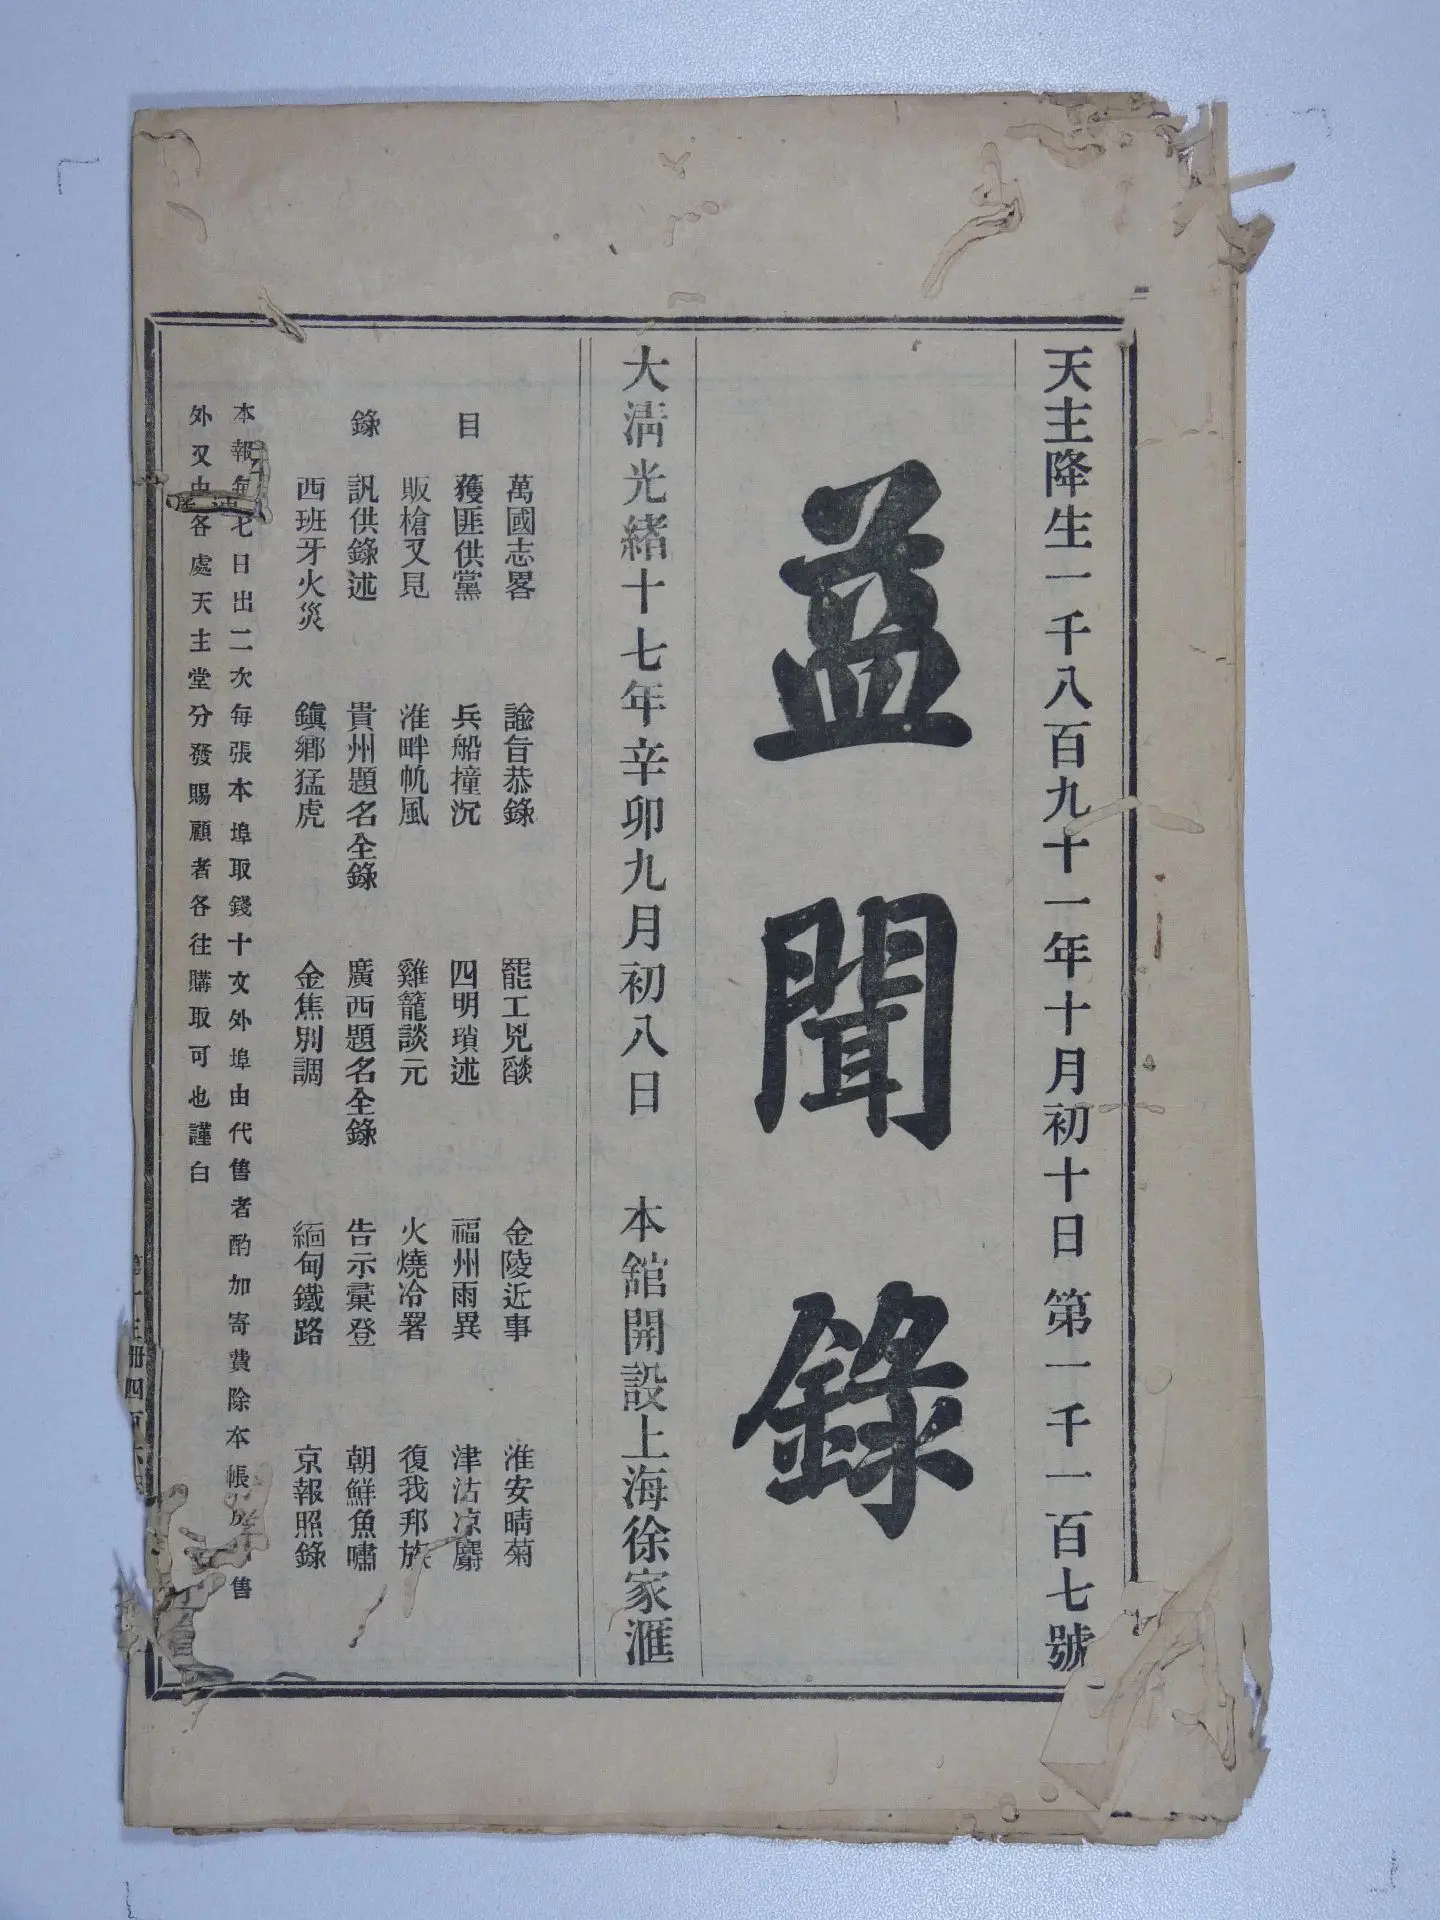 天主降生一千八百九十一年十月初十日 第一千一百七號
益聞錄
大淸光緒十七年辛卯九月初八日 本舘開設上海徐家滙
目錄
萬國志畧 諭旨恭錄 罷工兇燄 金陵近事 淮安晴菊
獲匪供黨 兵船撞沉 四明瑣述 福州雨異 津沽凉麝
販槍又見 淮畔帆風 雞籠談元 火燒冷署 復我邦族
訊供錄述 貴州題名全錄 廣西題名全錄 告示彙登 朝鮮魚嘯
西班牙火災 鎭鄉猛虎 金焦別調 緬甸鐵路 京報照錄
本報每七日出二次每張本埠取錢十文外埠由代售者酌加寄費除本帳房 售
外又由各處天主堂分發賜顧者各往購取可也謹白
册四百